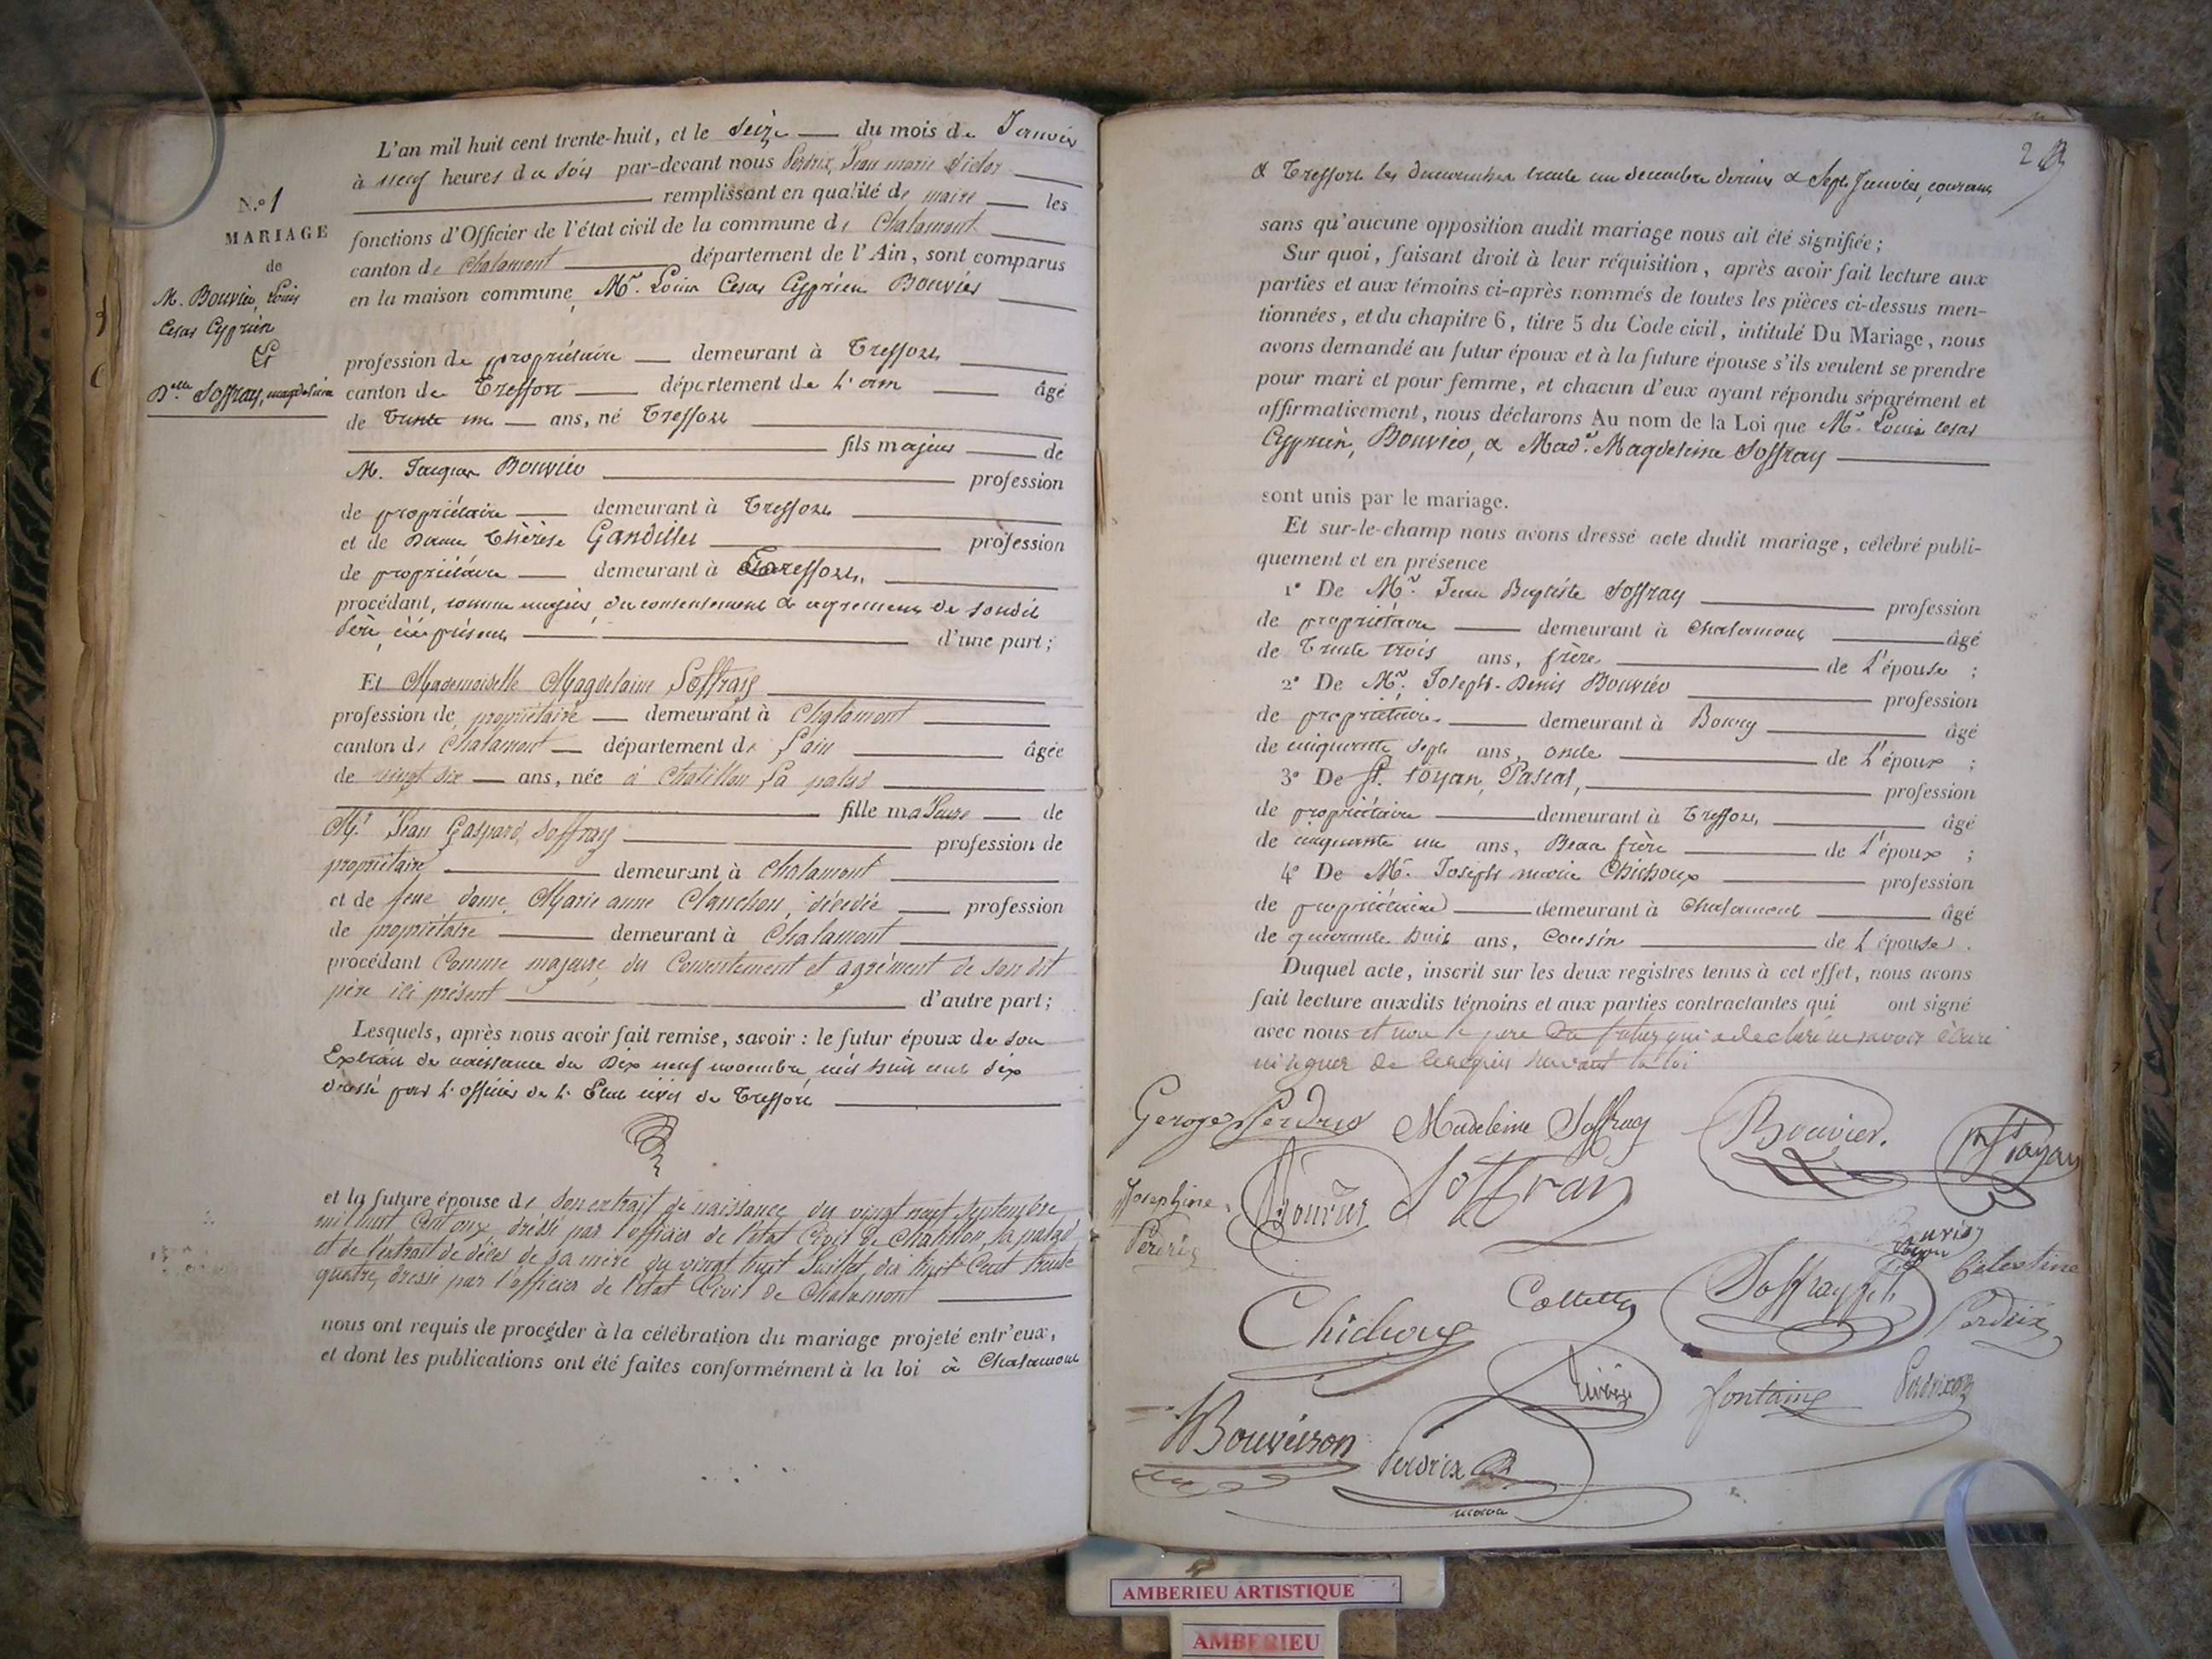 L'an mil huit cent trente-huit, et le seize du mois de Janvier
à neuf heures du soir par-devant nous Perdrix, Jean marie Victor
remplissant en qualité de maire les
fonctions d'Officier de l'état civil de la commune de Chalamont
canton de Chalamont département de l'Ain, sont comparus
en la maison commune, Mr. Louis Cesar Cyprien Bouvier
N.º 1
MARIAGE
de
M. Bouvier, Louis
Cesar Cyprien
Et
Delle Soffray, magdelaine
profession de propriétaire demeurant à Treffort
canton de Treffort département de L'ain âgé
de Trente un ans, né Treffort
fils majeur de
M. Jacques Bouvier profession
de propriétaire demeurant à Treffort
et de Dame Thérèse Gandillet profession
de propriétaire demeurant à Treffort,
procédant, comme majeur, du consentement & agrément de son dit
Père, ici présent d'une part;
Et Mademoiselle Magdelaine Soffray
profession de propriétaire demeurant à Chalamont
canton de Chalamont département de L'ain âgée
de vingt six ans, née à Chatillon La palud
fille majeure de
Mr Jean Gaspard Soffray profession de
propriétaire demeurant à Chalamont
et de feue dame Marie anne Clanchon, décédée profession
de propriétaire demeurant à Chalamont
procédant Comme majeure, du Consentement et agrément de son dit
père ici présent d'autre part;
Lesquels, après nous avoir fait remise, savoir: le futur époux de son
Extrait de naissance du Dix neuf novembre, mil huit cent six
dressé par L'officier de L'Etat civil de Treffort
et la future épouse de son extrait de naissance du vingt neuf Septembre
mil huit Cent onze dressé par l'officier de l'état Civil de Chatillon, la palud
et de l'extrait de décès de sa mère du vingt huit Juillet dix huit Cent trente
quatre, dressé par l'officier de l'état Civil de Chalamont
nous ont requis de procéder à la célébration du mariage projeté entr'eux,
et dont les publications ont été faites conformément à la loi à Chalamont
2
& Treffort les dimanches trente un décembre dernier & Sept Janvier, courant
sans qu'aucune opposition audit mariage nous ait été signifiée;
Sur quoi, faisant droit à leur réquisition, après avoir fait lecture aux
parties et aux témoins ci-après nommés de toutes les pièces ci-dessus men-
tionnées, et du chapitre 6, titre 5 du Code civil, intitulé Du Mariage, nous
avons demandé au futur époux et à la future épouse s'ils veulent se prendre
pour mari et pour femme, et chacun d'eux ayant répondu séparément et
affirmativement, nous déclarons Au nom de la Loi que Mr. Louis Cesar
Cyprien, Bouvier, & Made. Magdeleine Soffray
sont unis par le mariage.
Et sur-le-champ nous avons dressé acte dudit mariage, célébré publi-
quement et en présence
1º De Mr. Jean Baptiste Soffray profession
de propriétaire demeurant à Chalamont âgé
de Trente trois ans, frère de L'épouse;
2º De Mr. Joseph-Denis Bouvier profession
de propriétaire demeurant à Bourg âgé
de cinquante sept ans, oncle de L'époux;
3º De Pascal, profession
de propriétaire demeurant à Treffort âgé
de cinquante un ans, Beau frère de L'époux;
4º De Mr. Joseph marie Chichoux profession
de propriétaire demeurant à Chalamont âgé
de quarante huit ans, Cousin de L'épouse.
Duquel acte, inscrit sur les deux registres tenus à cet effet, nous avons
fait lecture auxdits témoins et aux parties contractantes qui ont signé
avec nous et non le père du futur qui a déclaré ne savoir écrire
ni signer de ce requis suivant la loi
Perdrix Madeleine Soffray Bouvier.
Josephine Perdrix Bouvier Soffray
Bouvier
Célestine Perdrix
Chichoux Collette Soffray fils
fontaine Perdrix
Bouveiron Perdrix
maire
AMBERIEU ARTISTIQUE
AMBERIEU